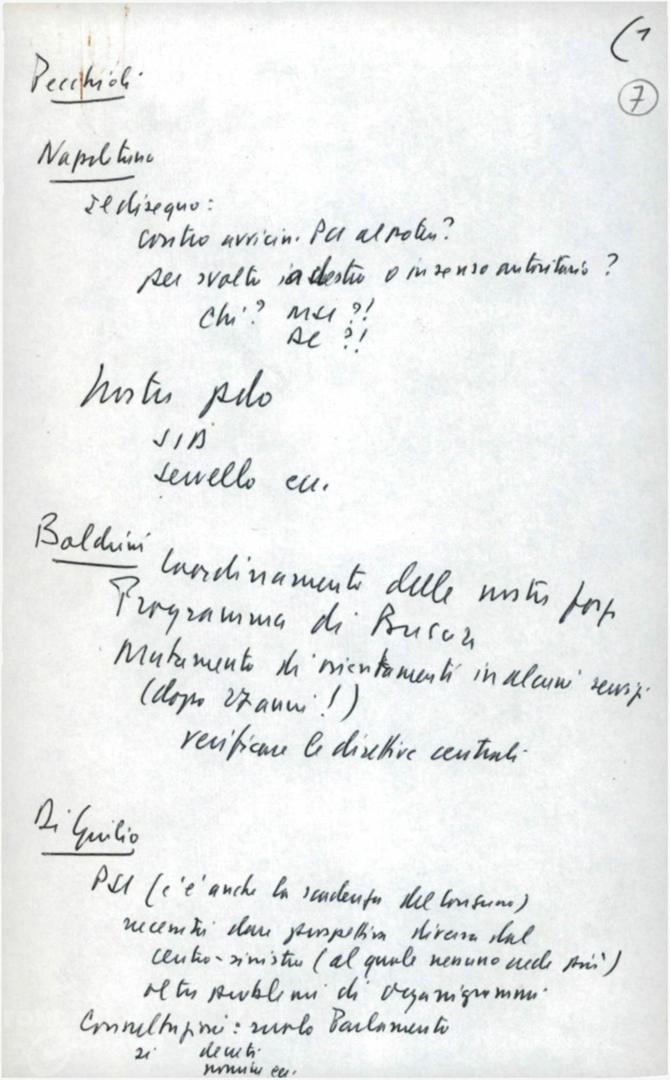 (1
7
Pecchioli
Napolitano
Il disegno:
contro avvicin. PCI al potere?
per svolta a destra o in senso autoritario?
Chi? MSI ?!
DC ?!
Nostra
SID
Servello ecc.
Boldrini
Coordinamento delle nostre forze
Programma di
Mutamento di orientamenti in alcuni servizi
(dopo 27 anni!)
verificare le direttive centrali
Di Giulio
PSI (c'è anche la scadenza del Consuno)
necessità dare prospettiva diversa dal
centro-sinistra (al quale nessuno crede più)
oltre problemi di organigrammi
Consultazioni: ruolo Parlamento
si decreti
nomine ecc.